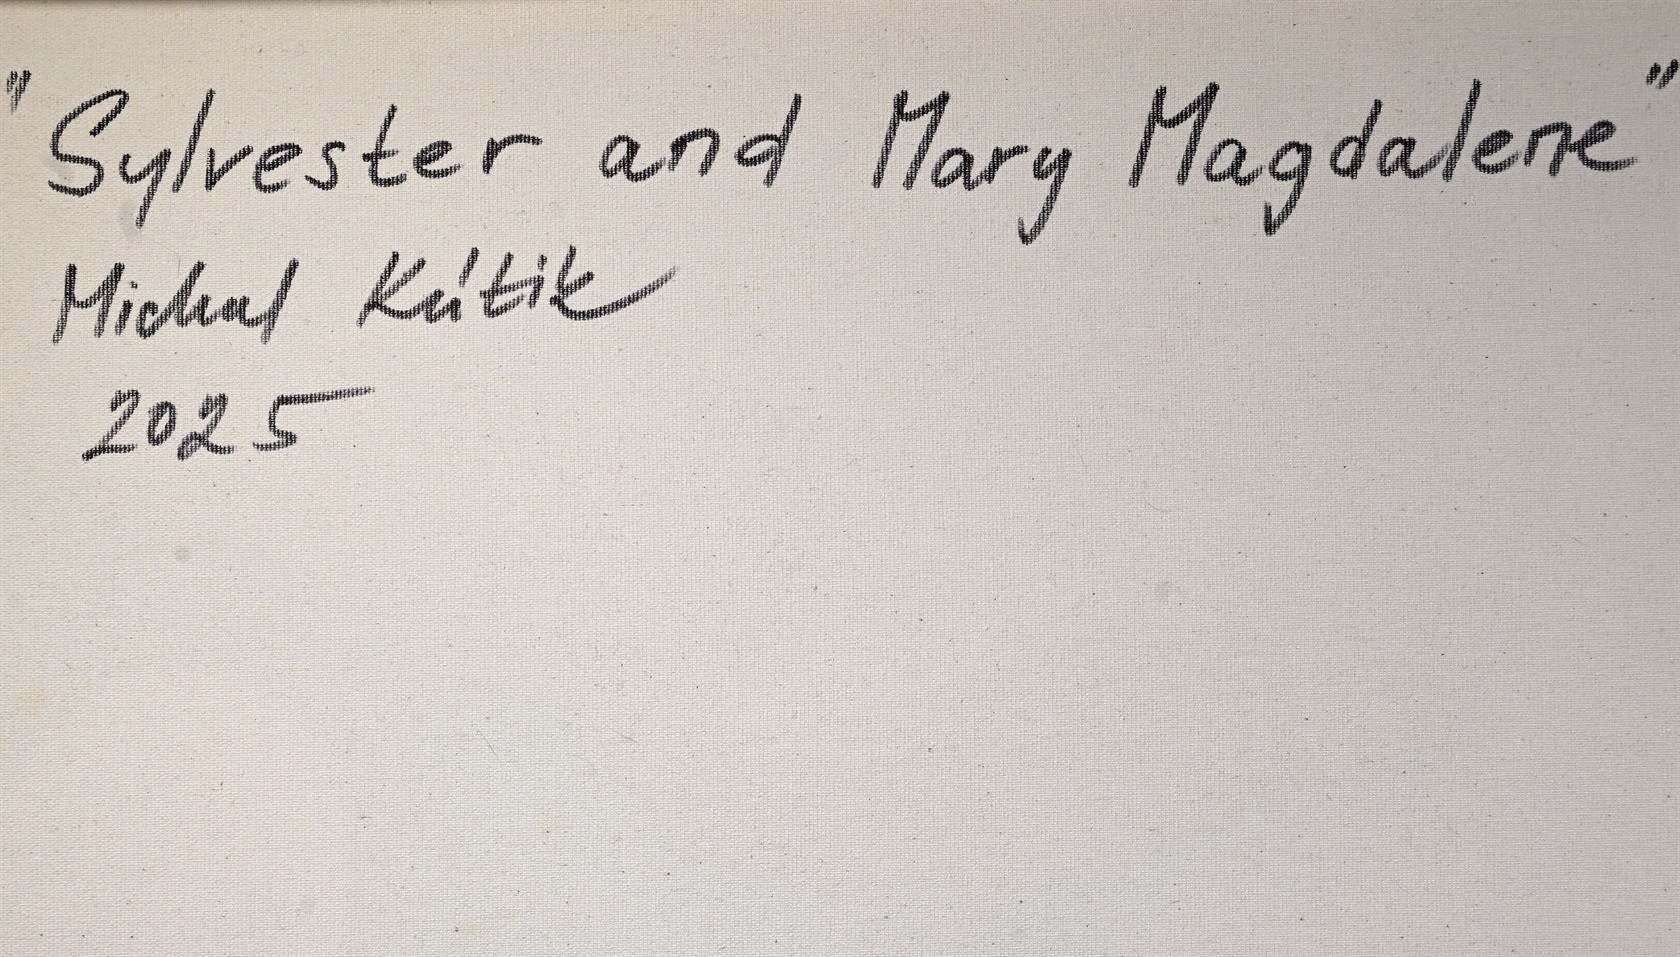 "Sylvester and Mary Magdalene"
Michal Kútik
2025